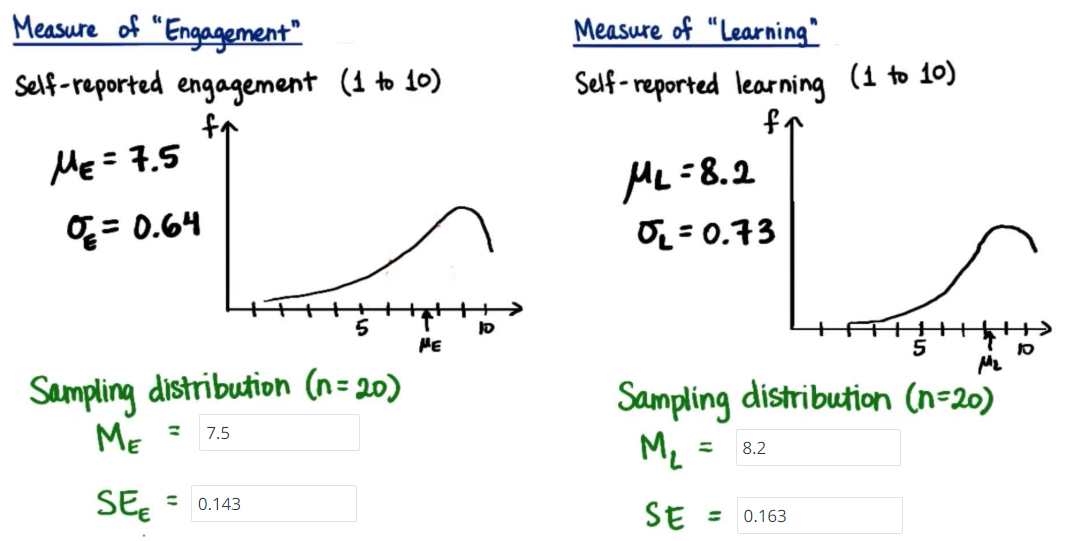 Measure of "Engagement"
Self-reported engagement (1 to 10)
f
μE = 7.5
σE = 0.64
5
10
μE
Sampling distribution (n=20)
ME = 7.5
SEE = 0.143
Measure of "Learning"
Self-reported learning (1 to 10)
f
μL = 8.2
σL = 0.73
5
10
μL
Sampling distribution (n=20)
ML = 8.2
SE = 0.163